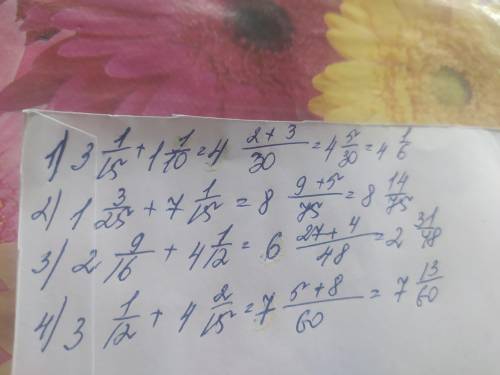 1) 3 1/15 + 1 1/10 = 4 2+3/30 = 4 5/30 = 4 1/6
2) 1 3/25 + 7 1/15 = 8 9+5/75 = 8 14/75
3) 2 9/16 + 4 1/12 = 6 27+4/48 = 2 31/48
4) 3 1/12 + 4 2/15 = 7 5+8/60 = 7 13/60